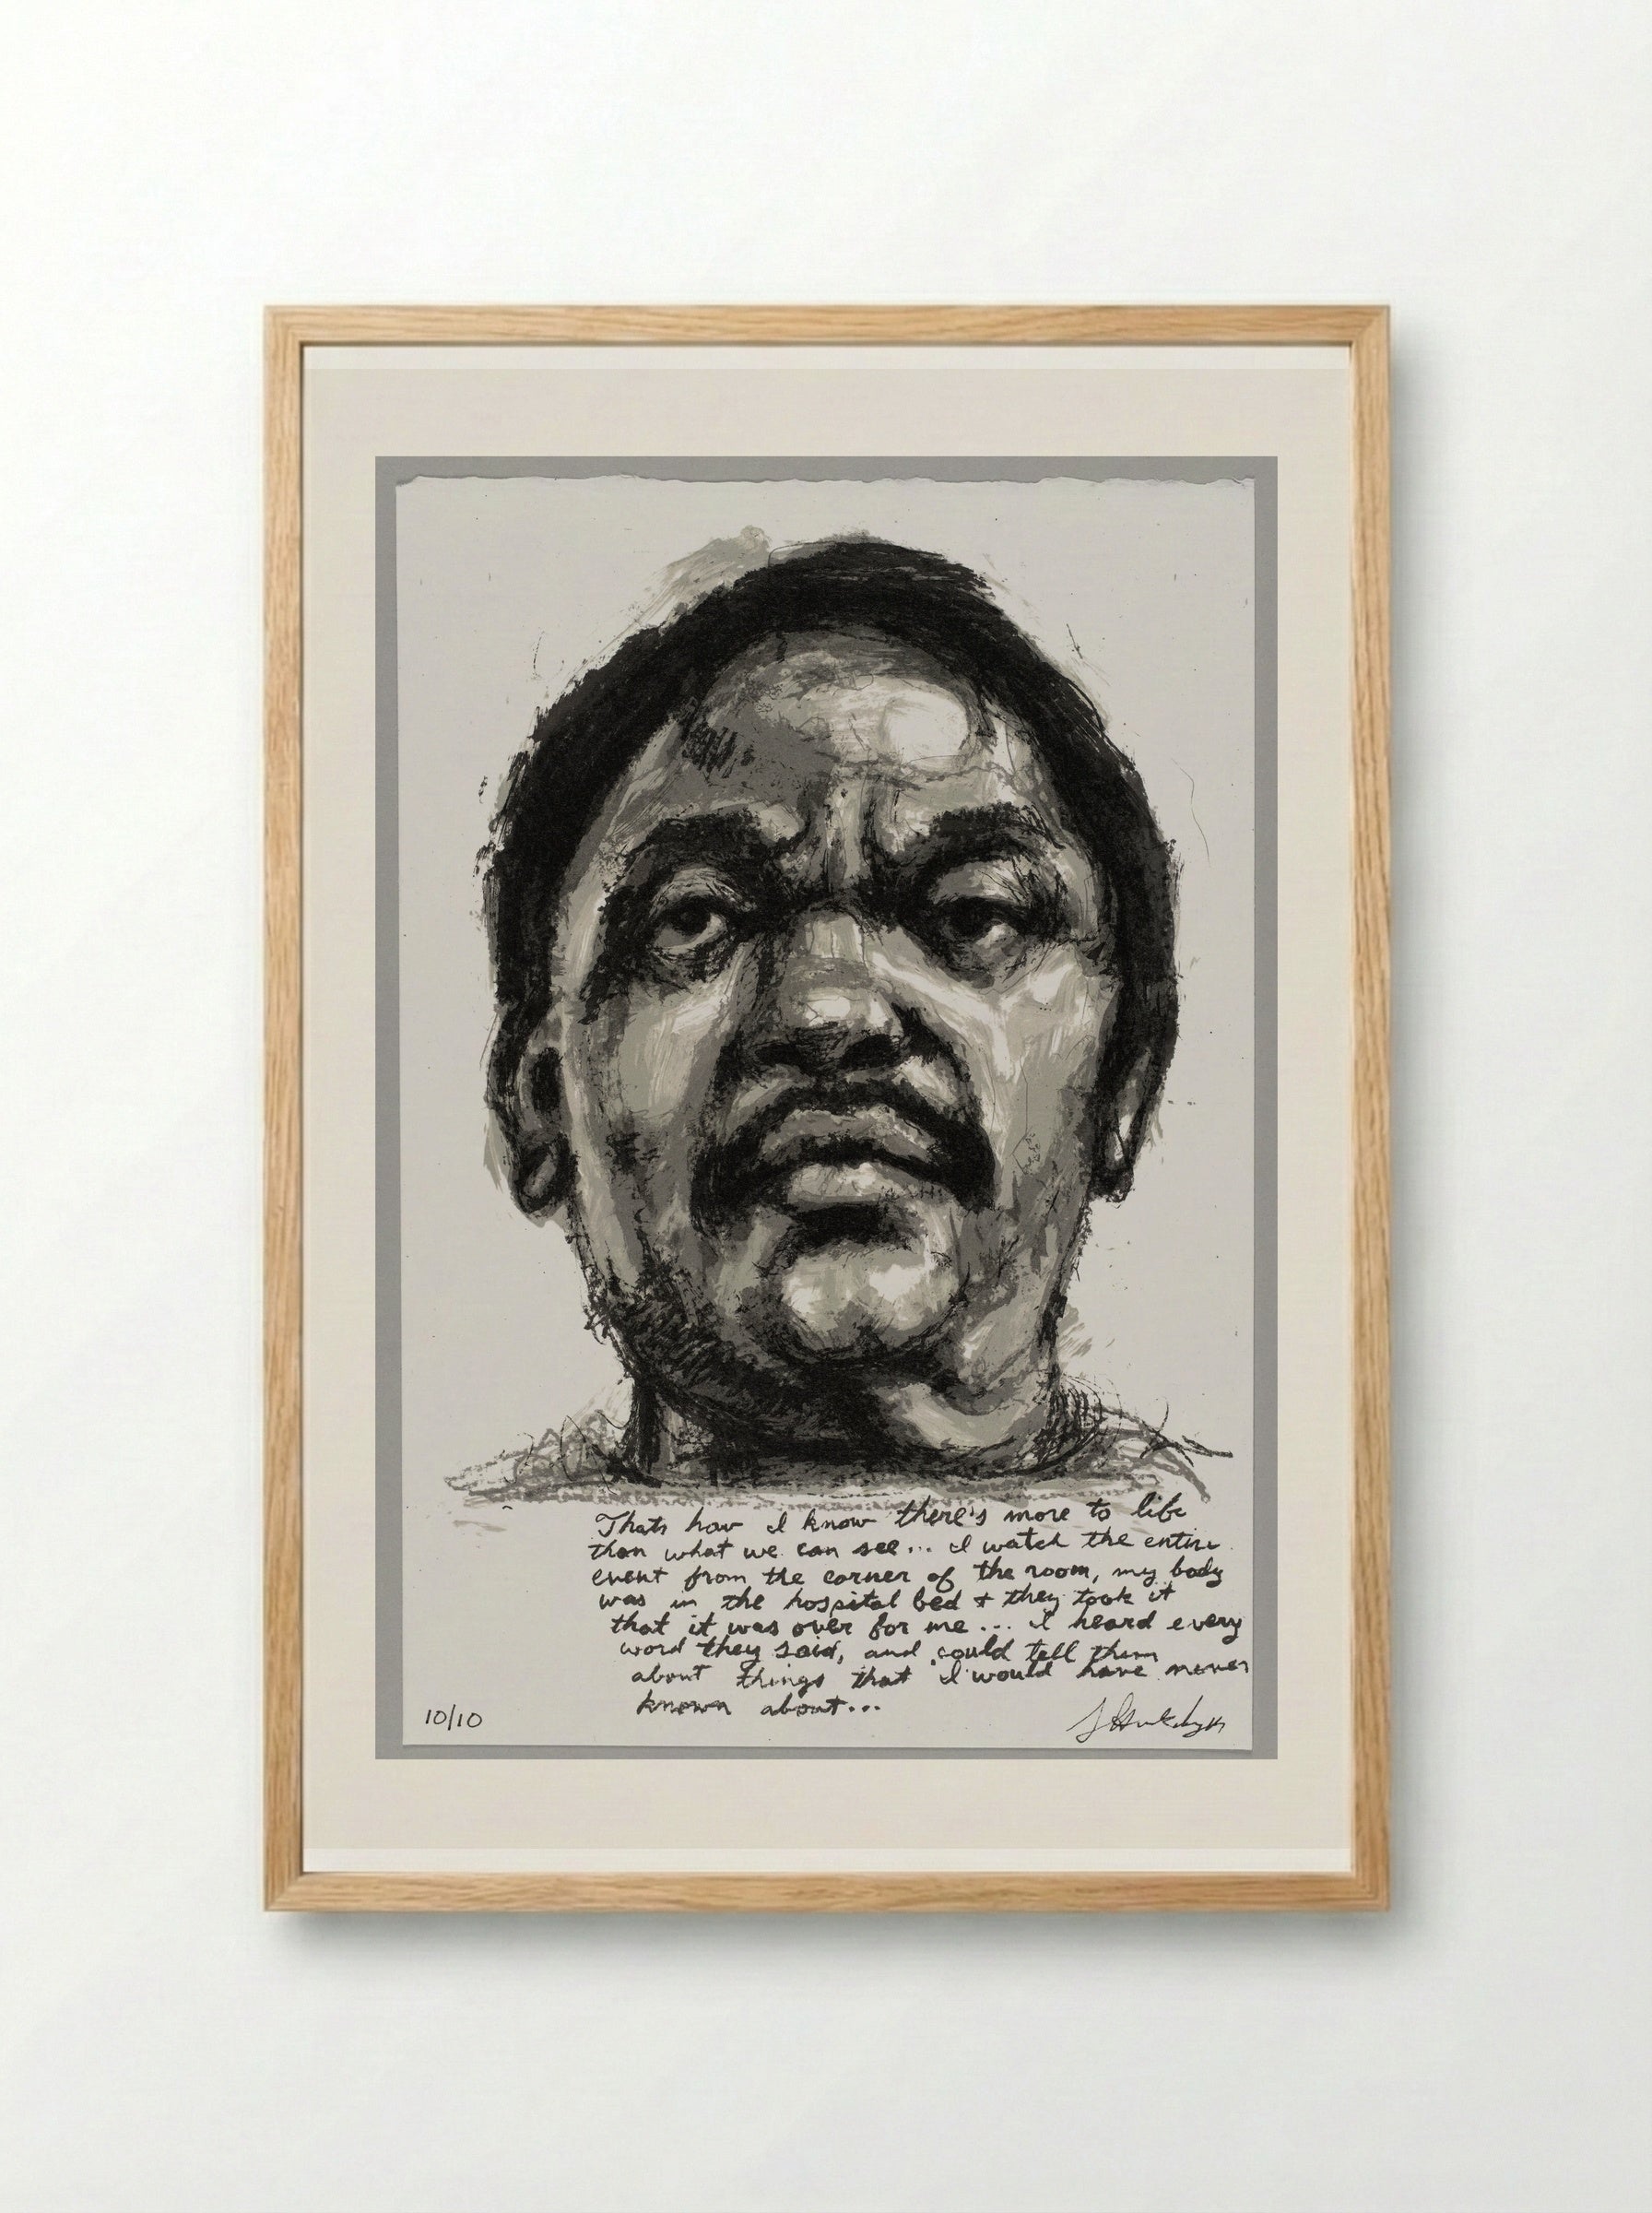 Thats how I know there's more to life
than what we can see... I watch the entire
event from the corner of the room, my body
was in the hospital bed + they took it
that it was over for me... I heard every
word they said, and could tell them
about things that I would have never
known about...
10/10